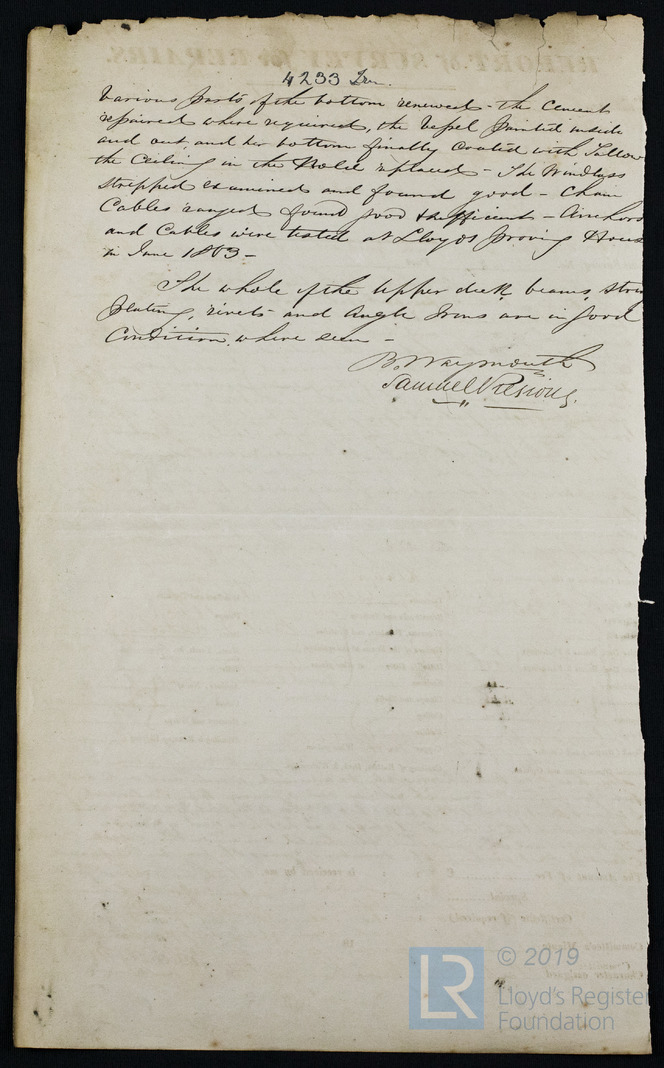 4233 Iron
Various parts of the bottom renewed - the Cement
repaired where required, the Vessel painted inside
and out, and her bottom finally Coated with Tallow
the Ceiling in the Hold replaced - The Windlass
stripped examined and found good - Chain
Cables ranged found good & sufficient - Anchors
and Cables were tested at Lloyds Proving House
in June 1863 -
The whole of the Upper deck beams, string
plating, rivets and Angle Irons are in good
Condition where seen -
B. Waymouth
Samuel Presious
© 2019
LR
Lloyd's Register
Foundation